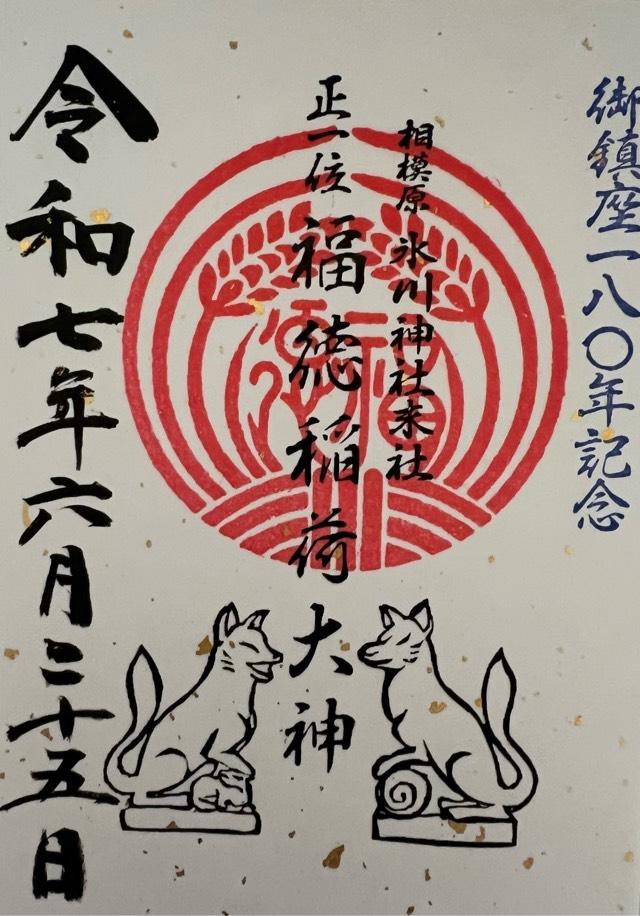 御鎮座一八〇年記念
相模原 氷川神社末社
正一位 福徳稲荷大神
令和七年六月二十五日